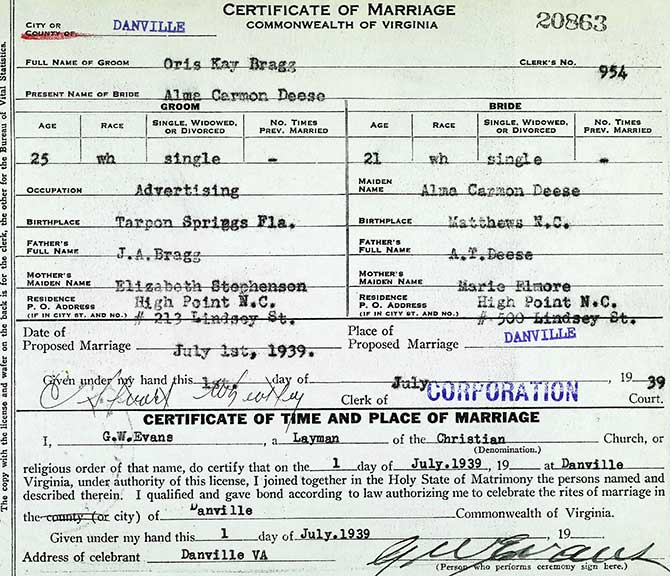 CERTIFICATE OF MARRIAGE
COMMONWEALTH OF VIRGINIA
20863
CITY OR
COUNTY OF
DANVILLE
FULL NAME OF GROOM Oris Kay Bragg CLERK'S NO. 954
PRESENT NAME OF BRIDE Alma Carmon Deese
GROOM BRIDE
AGE RACE SINGLE, WIDOWED, OR DIVORCED NO. TIMES PREV. MARRIED AGE RACE SINGLE, WIDOWED, OR DIVORCED NO. TIMES PREV. MARRIED
25 wh single - 21 wh single -
OCCUPATION Advertising MAIDEN NAME Alma Carmon Deese
BIRTHPLACE Tarpon Springs Fla. BIRTHPLACE Matthews N.C.
FATHER'S FULL NAME J.A.Bragg FATHER'S FULL NAME A.T.Deese
MOTHER'S MAIDEN NAME Elizabeth Stephenson MOTHER'S MAIDEN NAME Marie Elmore
RESIDENCE High Point N.C. RESIDENCE High Point N.C.
P. O. ADDRESS P. O. ADDRESS
(IF IN CITY ST. AND NO.) # 213 Lindsey St. (IF IN CITY ST. AND NO.) # 500 Lindsey St.
Date of Proposed Marriage July 1st, 1939. Place of Proposed Marriage DANVILLE
Given under my hand this 1st. day of July, 19 39
Clerk of CORPORATION Court.
CERTIFICATE OF TIME AND PLACE OF MARRIAGE
I, G.W.Evans, a Layman of the Christian Church, or
(Denomination.)
religious order of that name, do certify that on the 1 day of July.1939, 19 at Danville
Virginia, under authority of this license, I joined together in the Holy State of Matrimony the persons named and
described therein. I qualified and gave bond according to law authorizing me to celebrate the rites of marriage in
the county (or city) of Danville Commonwealth of Virginia.
Given under my hand this 1 day of July.1939 19
Address of celebrant Danville VA G W Evans
(Person who performs ceremony sign here.)
The copy with the license and wafer on the back is for the clerk, the other for the Bureau of Vital Statistics.